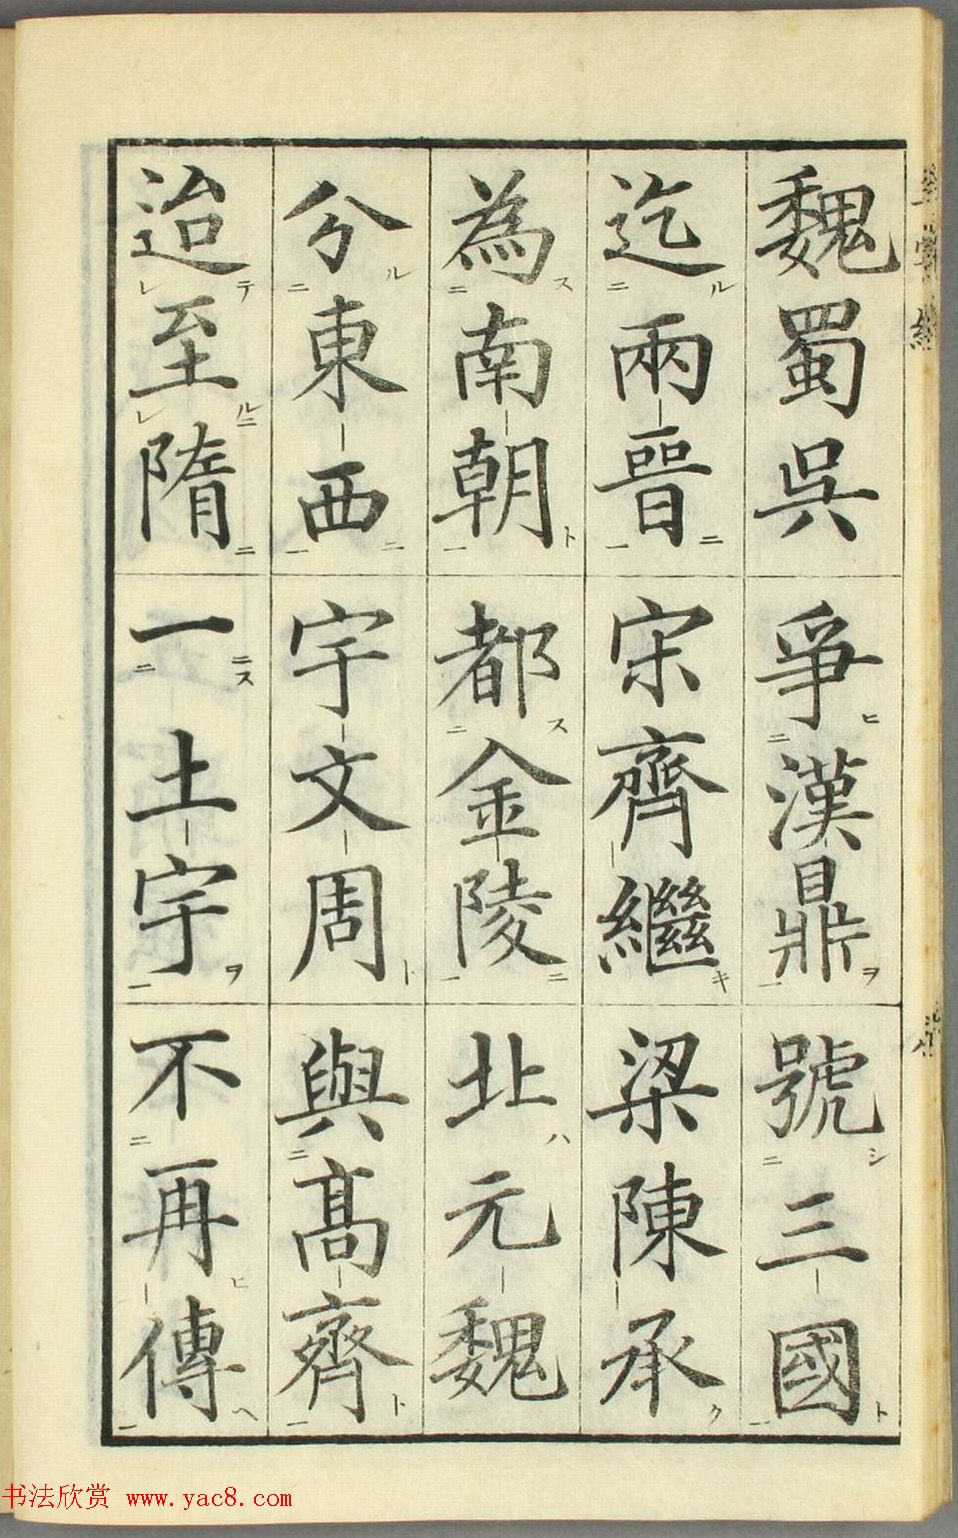 魏蜀吳爭漢鼎號三國
迄兩晉宋齊繼梁陳承
為南朝都金陵北元魏
分東西宇文周與高齊
迨至隋一土宇不再傳
书法欣赏 www.yac8.com